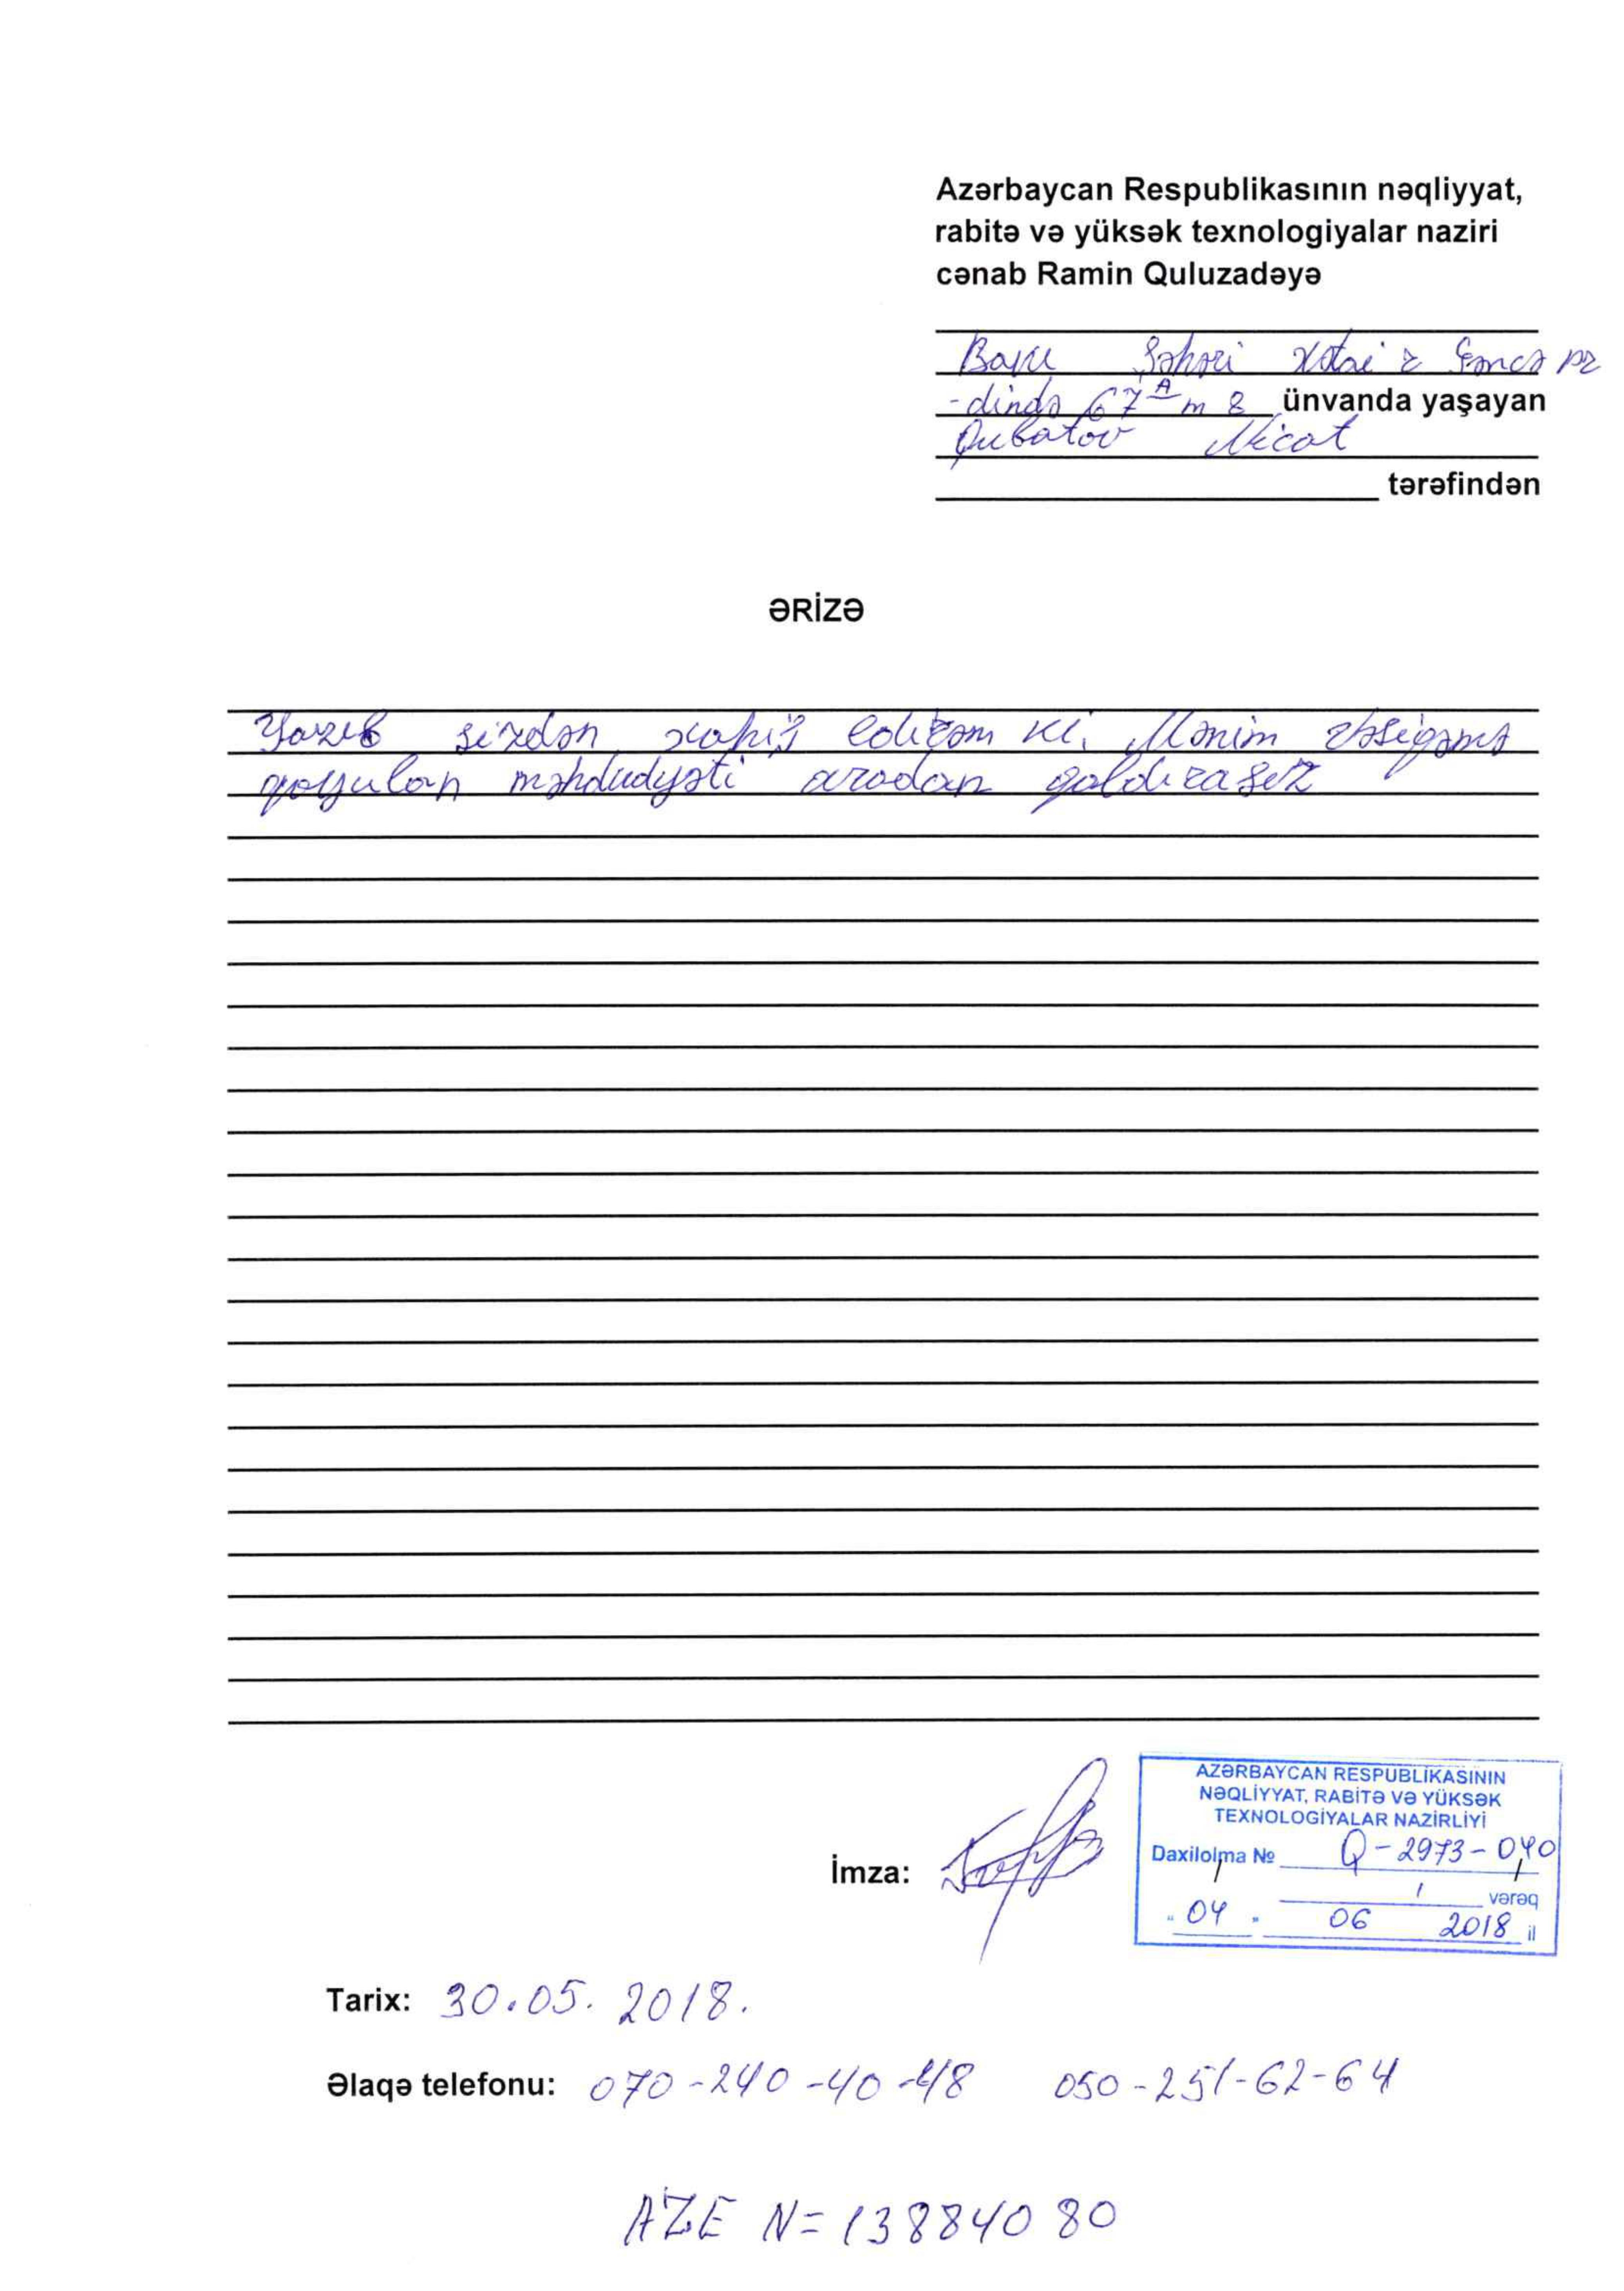 Azərbaycan Respublikasının nəqliyyat,
rabitə və yüksək texnologiyalar naziri
cənab Ramin Quluzadəyə
Bakı Şəhəri Xətai r Gəncə pr
-dində 67ᴬ m 8 ünvanda yaşayan
Qubatov Nicat
tərəfindən
ƏRİZƏ
Yazıb sizdən xahiş edirəm ki, Mənim
qoyulan məhdudyəti aradan qaldırasız
İmza:
AZƏRBAYCAN RESPUBLİKASININ
NƏQLİYYAT, RABİTƏ VƏ YÜKSƏK
TEXNOLOGİYALAR NAZİRLİYİ
Daxilolma № Q-2973-040
1 vərəq
"04" 06 2018 il
Tarix: 30.05.2018.
Əlaqə telefonu: 070-240-40-48 050-251-62-64
AZE N=13884080